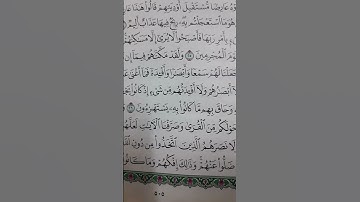 وْهُ عَارِضًا مُّسْتَقْبِلَ أَوْدِيَتِهِمْ قَالُوا۟ هَٰذَا عَا
هُوَ مَا ٱسْتَعْجَلْتُم بِهِۦ رِيحٌ فِيهَا عَذَابٌ أَلِيمٌ
بِأَمْرِ رَبِّهَا فَأَصْبَحُوا۟ لَا يُرَىٰٓ إِلَّا مَسَٰكِنُهُمْ
ٱلْقَوْمَ ٱلْمُجْرِمِينَ ٢٥ وَلَقَدْ مَكَّنَّٰهُمْ فِيمَآ إِن
جَعَلْنَا لَهُمْ سَمْعًا وَأَبْصَٰرًا وَأَفْـِٔدَةً فَمَآ أَغْنَىٰ
أَبْصَٰرُهُمْ وَلَآ أَفْـِٔدَتُهُم مِّن شَىْءٍ إِذْ كَانُوا۟
وَحَاقَ بِهِم مَّا كَانُوا۟ بِهِۦ يَسْتَهْزِءُونَ ٢٦
حَوْلَكُم مِّنَ ٱلْقُرَىٰ وَصَرَّفْنَا ٱلْـَٔايَٰتِ لَعَلَّهُمْ
نَصَرَهُمُ ٱلَّذِينَ ٱتَّخَذُوا۟ مِن دُونِ ٱللَّهِ
ضَلُّوا۟ عَنْهُمْ وَذَٰلِكَ إِفْكُهُمْ وَمَا كَانُوا۟
٥٠٥